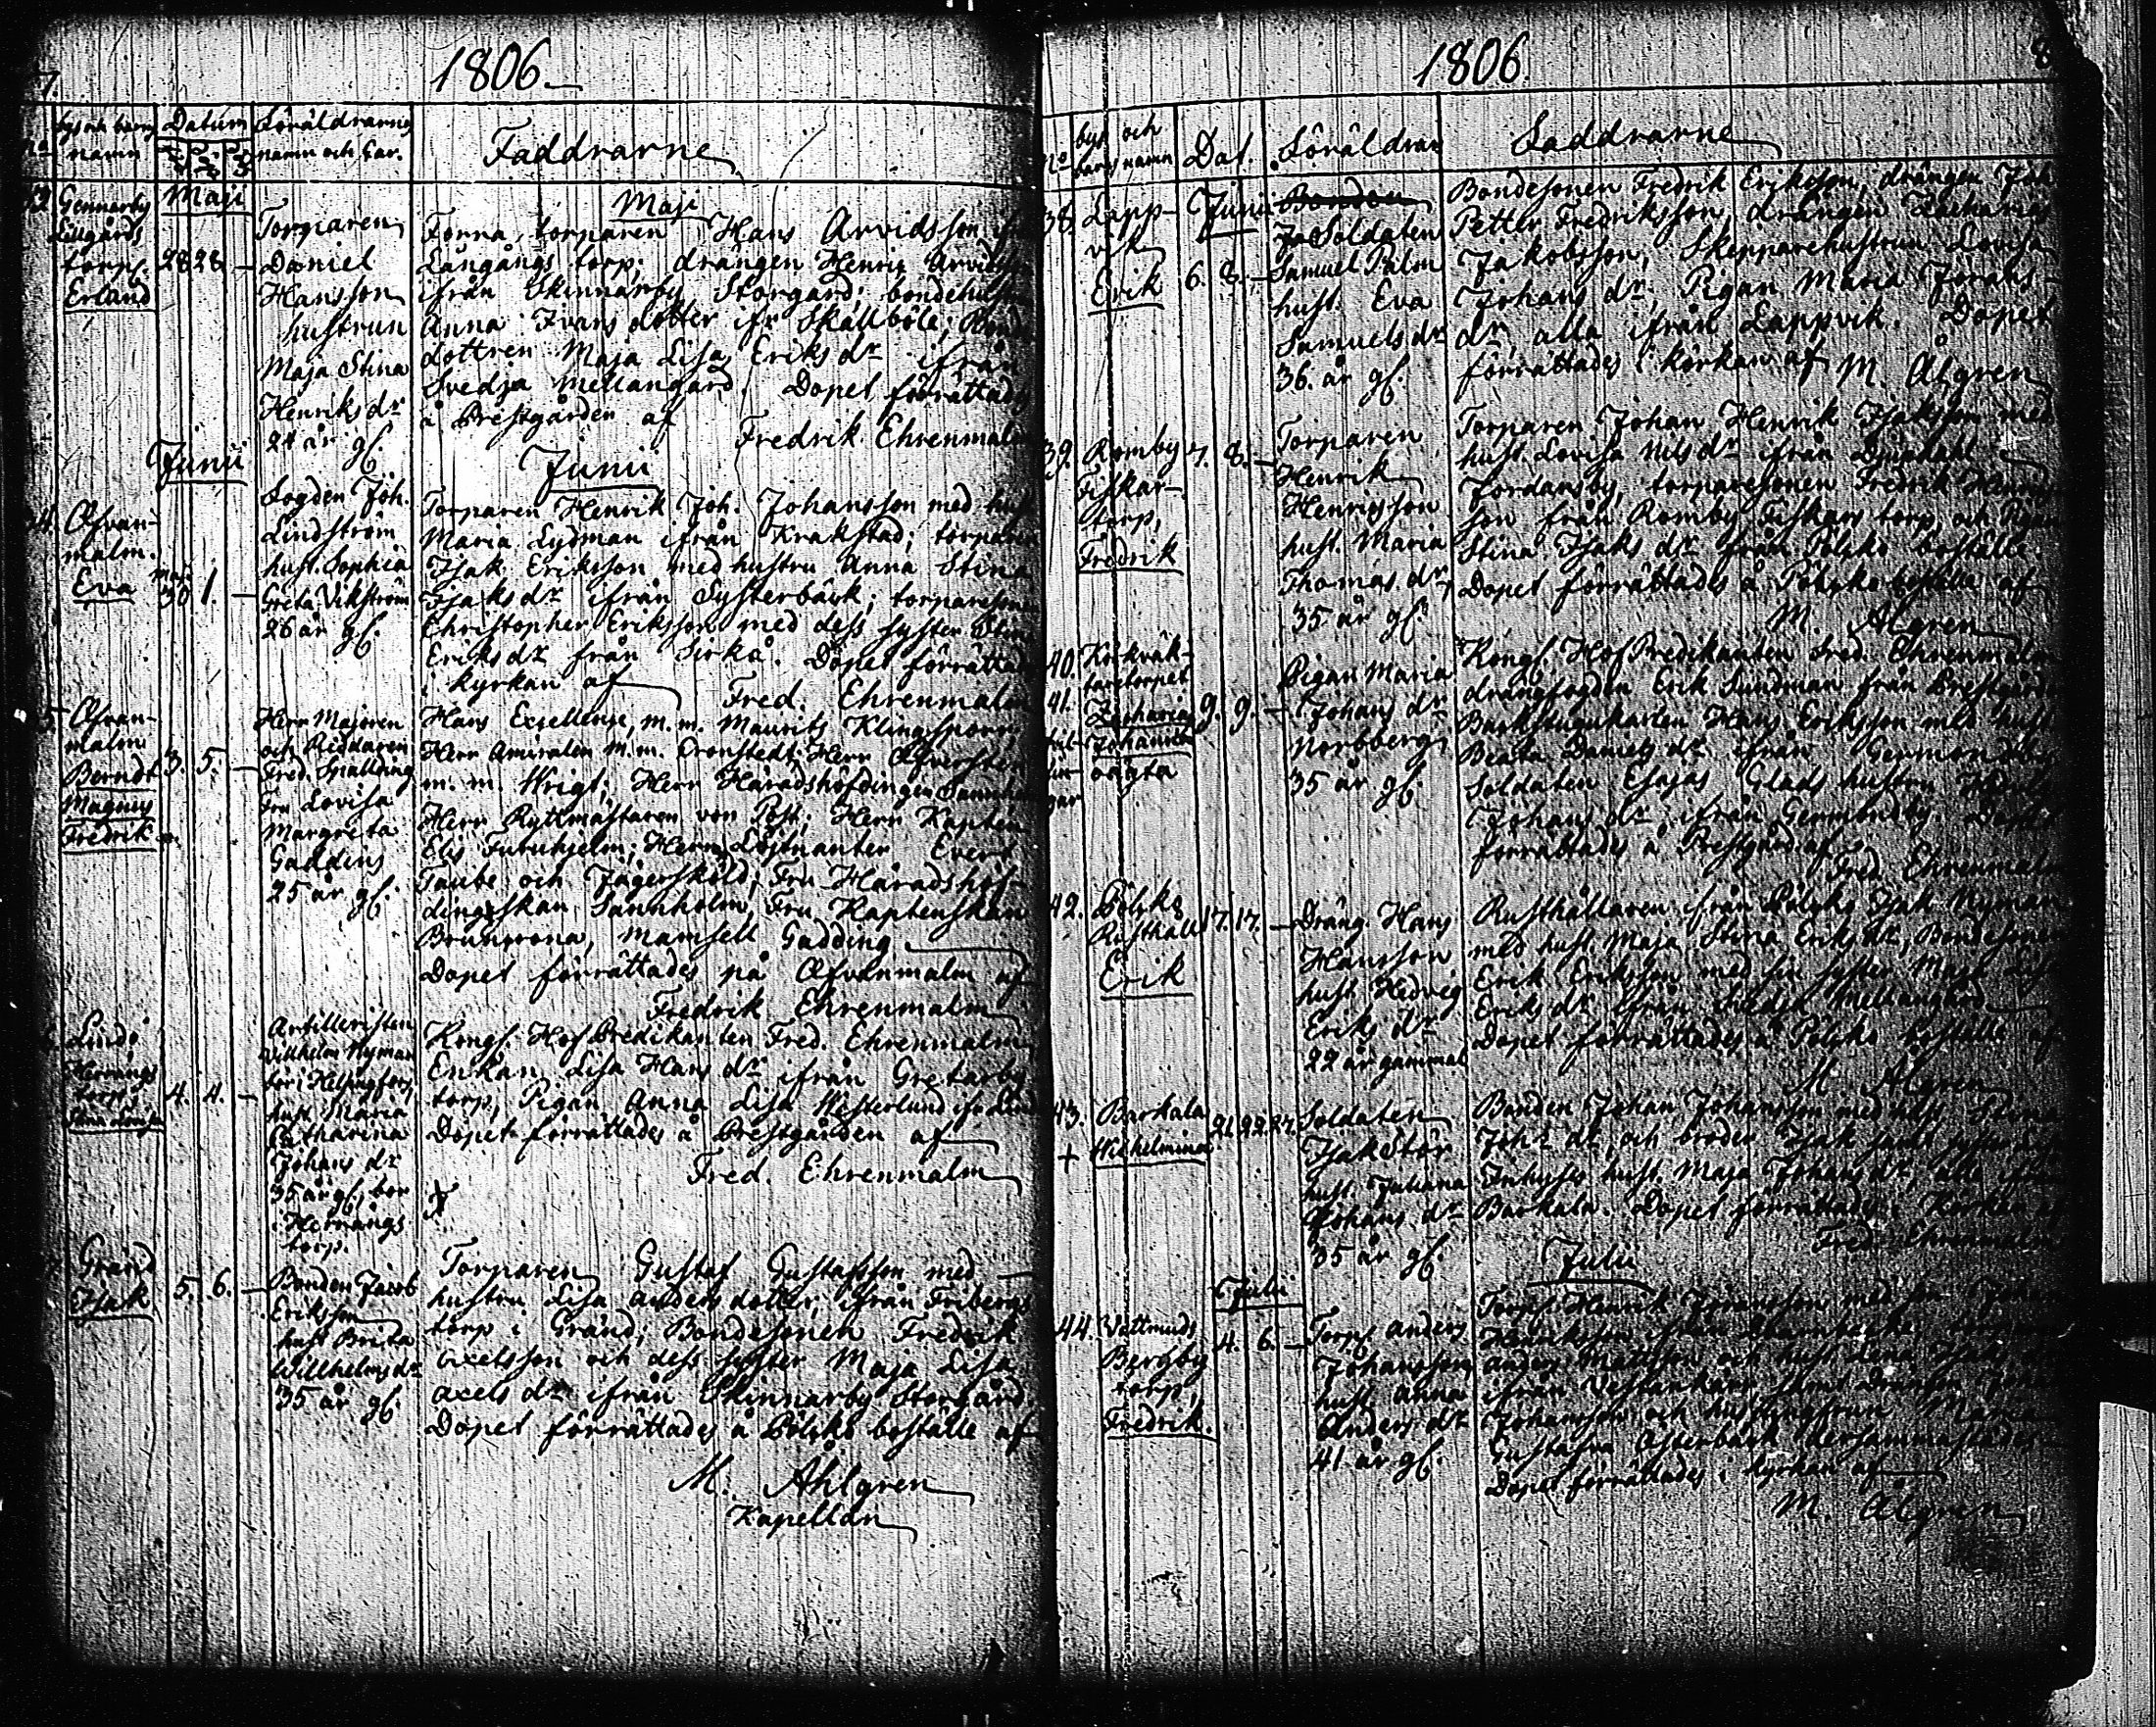 7.
1806.
bys och barns
namn
Datum
Föräldrarnes
namn och har.
Faddrarne
Maji
Maji
Gennarby
Lillgårds
torp.
Erland
28 28 —
Torparen
Daniel
Hansson
hustrun
Maja Stina
Henriksdr
24 år gl.
Förra torparen Hans Arvidsson
Långångs torp; drängen Henric Arvidsson
ifrån Skinnarby Storgård; bondehustrun
Anna Ivars dotter ifr Skållböle; Bonde
dottren Maja Lisa Eriks dr ifrån
Svedja Mellangård. Dopet förrättades
å Prestgården af
Fredrik Ehrenmalm
Junii
Junii
34.
Œfvan-
malm.
Eva
Maji
30 1. —
Fogden Joh.
Lindström
hust. Sophia
Greta Vikström
26 år gl.
Torparen Henrik Joh. Johansson med hust
Maria Lydman ifrån Krakstad; torparen
Isak Eriksson med hustru Anna Stina
Isaks dr ifrån Systerbäck; torparesonen
Christopher Eriksson med dess syster Stina
Eriks dr från Sirkå. Dopet förrättades
i kyrkan af
Fred. Ehrenmalm
Œfvan-
malm
Berndt
Magnus
Fredrik
3. 5. —
Herr Majoren
och Riddaren
Fred. Spalding
Fru Lovisa
Margreta
Gadding
25 år gl.
Hans Excellense, m.m. Maurits Klingsporr
Herr Amiralen m.m. Cronstedt; Herr Œfversten
m.m. Wrigt; Herr Häradshöfdingen Sannholm
Herr Ryttmästaren von Post; Herr Kapten
Elis Furuhjelm; Herrn Löjtnanter Evert
Taube och Jägerskjöld; Fru Häradshöf-
dingskan Sannholm, Fru Kaptenskan
Bruncrona, Mamsell Gadding
Dopet förrättades på Œfvanmalm af
Fredrik Ehrenmalm
Lindö
Herrängs
torp,
4. 4. —
Artilleristen
Willhelm Nyman
bor i Helsingfors,
hust Maria
Catharina
Johans dr
35 år gl, bor
i Herrängs
torp.
Kongl. Hof Predikanten Fred. Ehrenmalm
Enkan Lisa Hans dr ifrån Gretarby
torp, Pigan Anna Lisa Westerlund ifr Lindö
Dopet förrättades å Prestgården af
Fred. Ehrenmalm
Gränd
Isak
5. 6. —
Bonden Jacob
Eriksson
hust Brita
Willhelmsdr
35 år gl.
Torparen Gustaf Gustafsson med
hustru Lisa Anders dotter, ifrån Fribergs
torp i Gränd; Bondesonen Fredrik
Axelsson och dess syster Maja Lisa
Axels dr ifrån Skinnarby Storgård
Dopet förrättades å Pölsko boställe af
M. Ahlgren
Kapellan
1806.
8
No
bys och
barns namn
Dat.
Föräldrar
Faddrarne
38.
Lapp-
vik
Erik
Junii
6. 8. —
Soldaten
Samuel Palm
hust. Eva
Samuels dr
36. år gl.
Bondesonen Fredrik Eriksson, drängen Joh
Petter Fredriksson, drängen Zacharias
Jakobsson, Skepparehustrun Lovisa
Johans dr, Pigan Maria Jörans-
dr, alla ifrån Lappvik. Dopet
förrättades i körkan af M. Ålgren
39.
Romby
Fiskar-
torp,
Fredrik
7. 8. —
Torparen
Henrik
Henricsson
hust. Maria
Thomas dr
35 år gl.
Torparen Johan Henrik Isaksson med
hust. Lovisa Nils dr ifrån Djupdahl
Jordansby, torparesonen Fredrik Henrics-
son från Romby Fiskars torp, och Pigan
Stina Isaks dr från Pölsko boställe.
Dopet förrättades å Pölsko boställe af
M. Ålgren
40.
41.
Körkväk-
taretorpet
Zacharias
Johannes
oägta
9. 9. —
Pigan Maria
Johans dr
Norrberg
35 år gl.
Kongl. Hof Predikanten Fred. Ehrenmalm
drängfogden Erik Sundman från Prestgården
Backstugukarlen Hans Eriksson med hust
Beata Daniels dr ifrån Germondby
Soldaten Esajas Glads hustru
Johans dr ifrån Germondby. Dopet
förrättades å Prestgård af
Fred. Ehrenmalm
42.
Pölsko
Rusthåll
Erik
17. 17. —
Dräng. Hans
Hansson
hust Hedvig
Eriks dr
22 år gammal
Rusthållaren ifrån Pölsko Isak Nyman
med hust. Maja Stina Eriks dr, Bondesonen
Erik Eriksson med sin syster Maja Lisa
Eriks dr ifrån Svedja Mellangård
Dopet förrättades å Pölsko boställe af
M. Ålgren
43.
+
Backala
Wilhelmina
21. 22. 27.
Soldaten
Isak Stör
hust. Juliana
Johans dr
35 år gl.
Bonden Johan Johansson med hust Stina
Joh: dr, och broder Isak samt syster
Inhyses hust. Maja Johans dr, alla ifrån
Backala. Dopet förrättades i Körkan af
Fred. Ehrenmalm
Julii
Julii
44.
Bergby
torp,
Fredrik.
4. 6. —
Torp. Anders
Johansson
hust Anna
Anders dr
41 år gl.
Torp. Henrik Jöransson med son Johan
Henriksson ifrån
Anders Mattsson och hust Lena Isaks
ifrån Vestankärr, samt Drängen
Johansson och Maria
Gustafva Österback dersammastädes
Dopet förrättades i kyrkan af
M. Ålgren